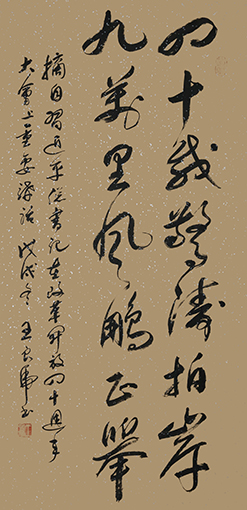 四十载惊涛拍岸
九万里风鹏正举
摘自習近平总書记在改革开放四十週年
大會上重要讲话 戊戌冬 王良虎书